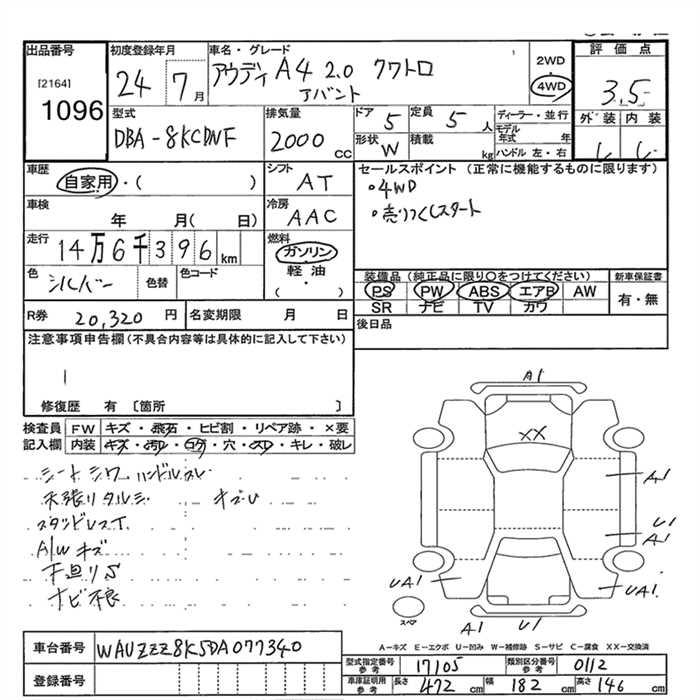 出品番号
[2164]
1096
初度登録年月
24 7月
車名・グレード
アウディ A4 2.0 クワトロ
アバント
2WD
4WD
評価点
3.5
外装 内装
型式
DBA-8KCDNF
排気量
2000cc
ドア 5
定員 5人
形状 W
積載 kg
ディーラー・並行
モデル年式 年
ハンドル 左・右
車歴
自家用・( )
シフト
AT
セールスポイント (正常に機能するものに限ります)
・4WD
・売りつくしスタート
車検
年 月( 日)
冷房
AAC
走行
14万6千396km
燃料
ガソリン
軽油・
( )
色
シルバー
色替
色コード
装備品 (純正品に限り〇をつけてください)
PS PW ABS エアB AW
SR ナビ TV カワ
新車保証書
有・無
R券 20,320円
名変期限 月 日
後日品
注意事項申告欄(不具合内容等は具体的に記入して下さい)
修復歴 有 〔箇所 〕
検査員記入欄
FW キズ・飛石・ヒビ割・リペア跡・×要
内装 キズ・汚れ・コゲ・穴・スレ・キレ・破レ
シートシワ ハンドルスレ
天張りタルミ キズU
A/Wキズ
下廻りS
ナビ不良
A1
XX
A1
U1
A1
UA1
UA1
スペア
A1
U1
A-キズ E-エクボ U-凹み W-補修跡 S-サビ C-腐食 XX-交換済
車台番号 WAUZZZ8K5DA077340
登録番号
型式指定番号 参考 17105
類別区分番号 参考 0112
車庫証明用 参考 長さ 472cm 幅 182cm 高さ 146cm